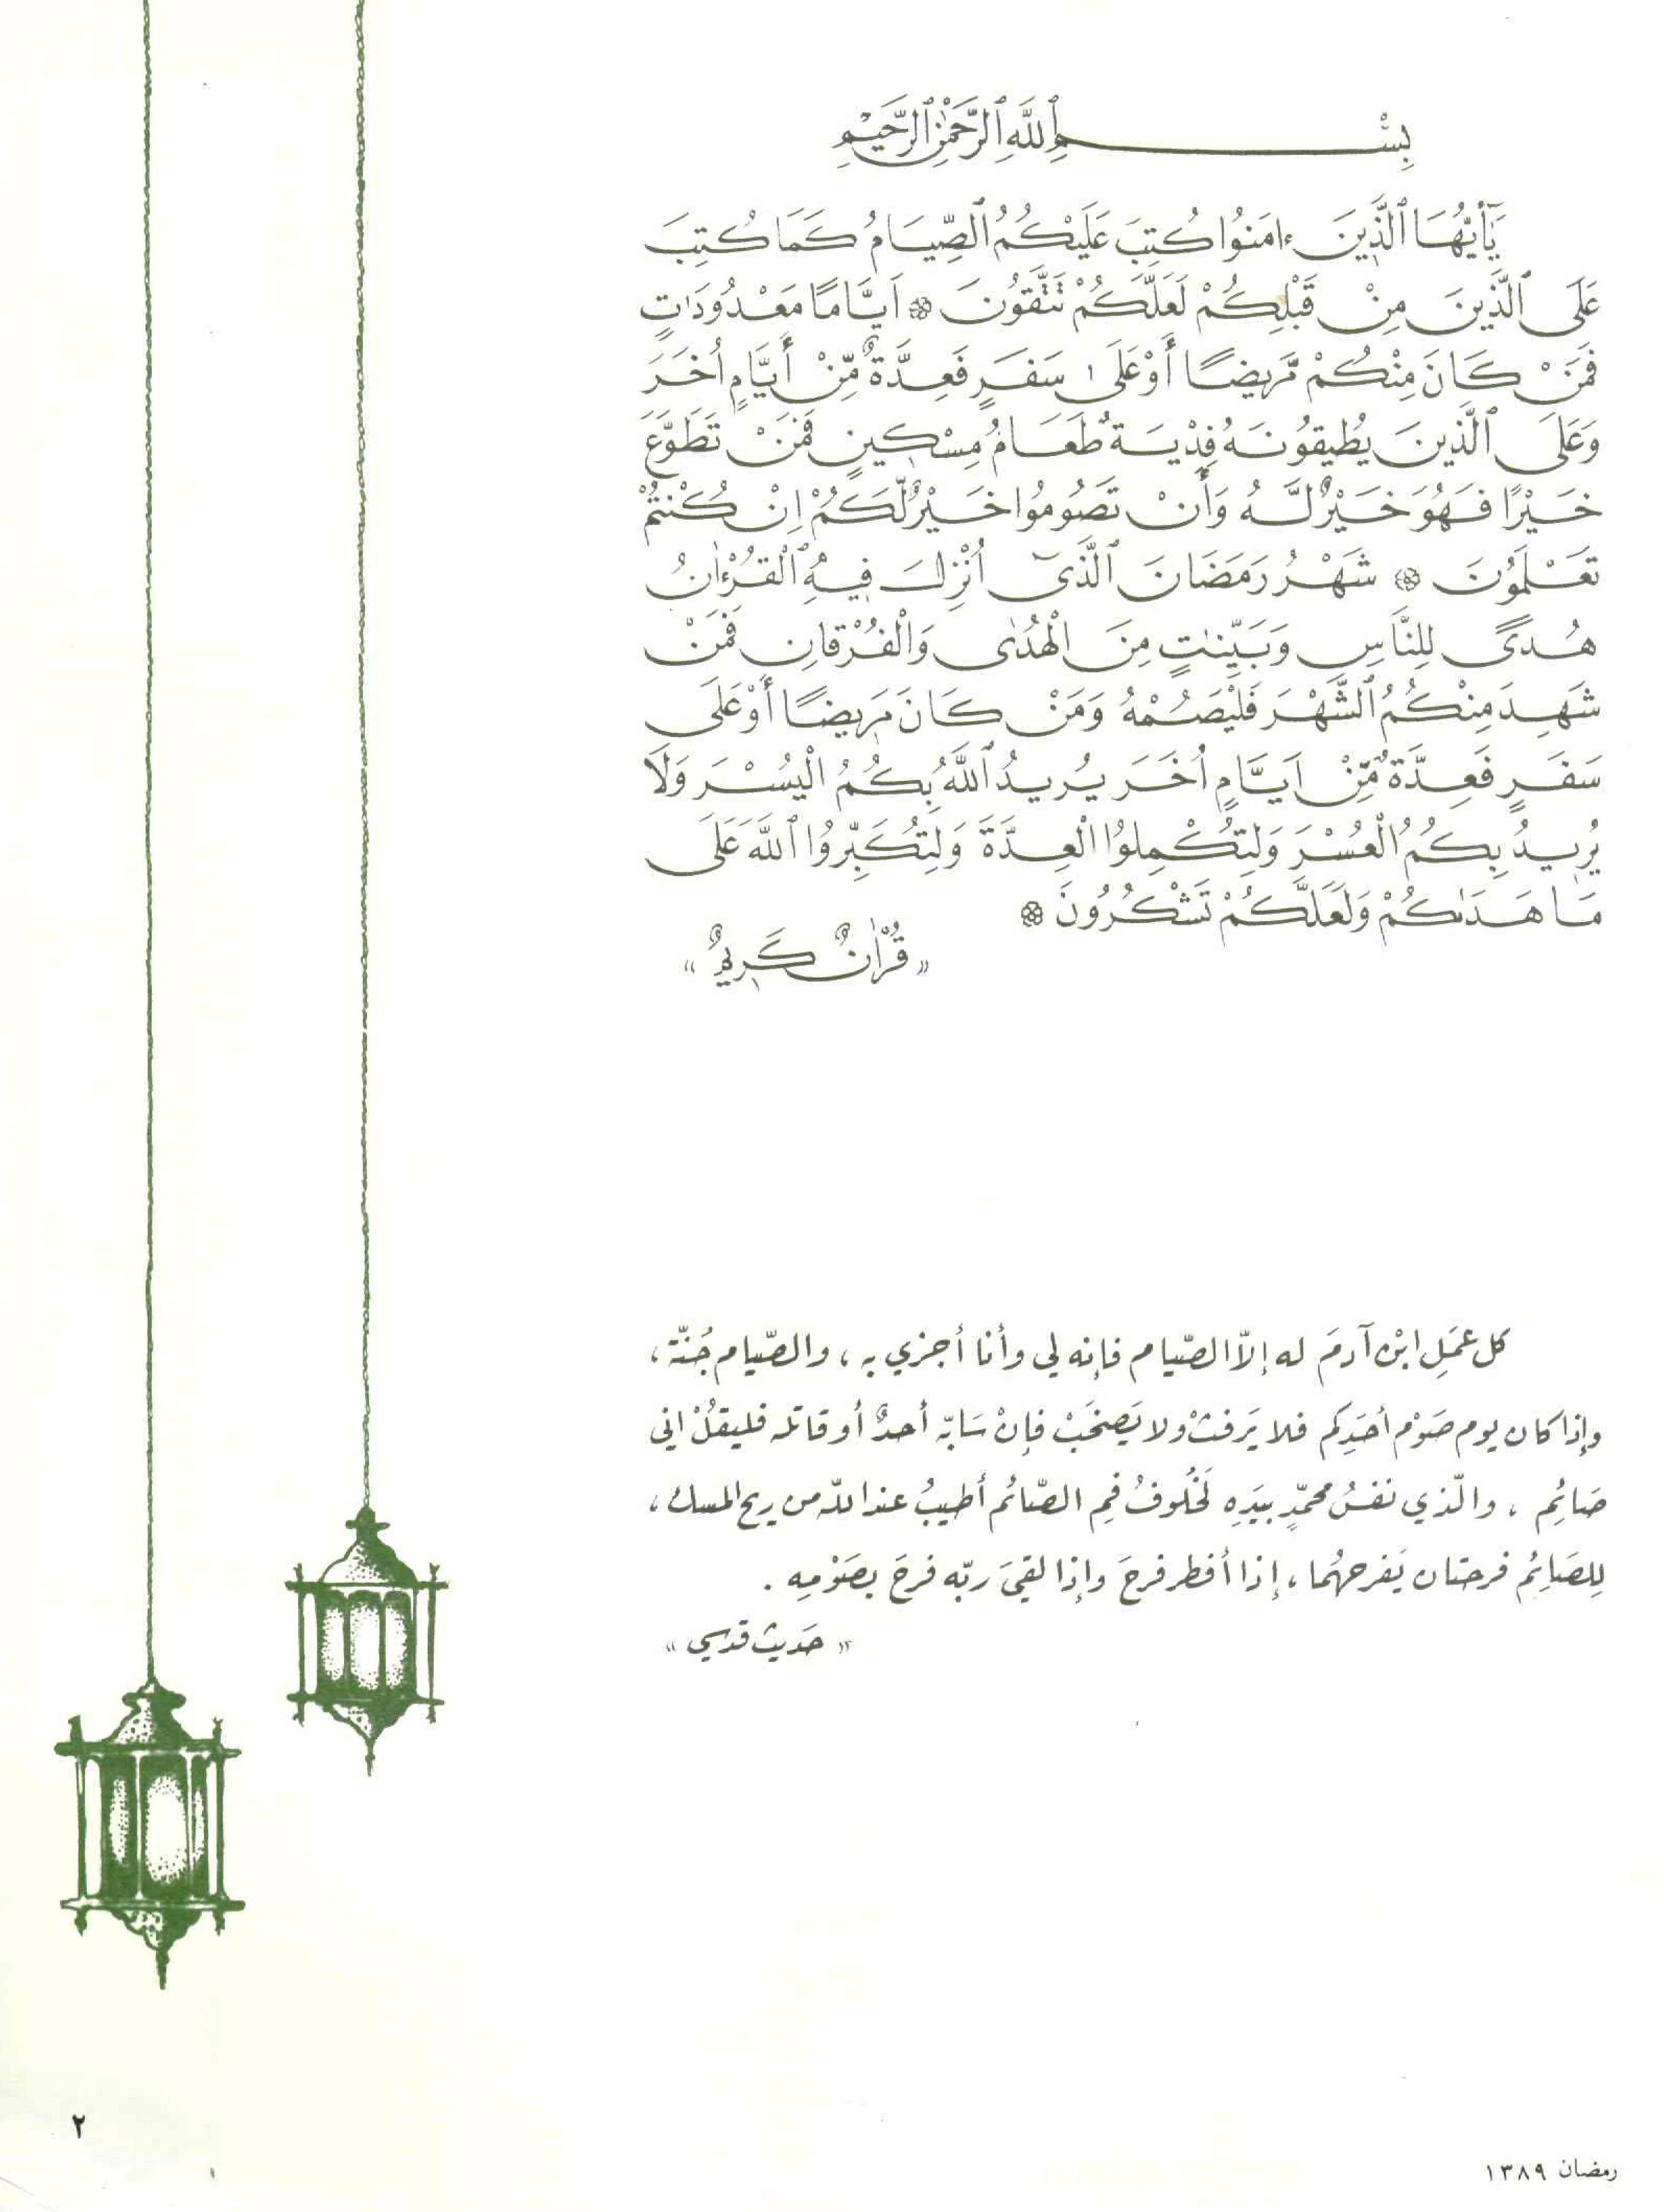 بِسْمِ ٱللَّهِ ٱلرَّحْمَٰنِ ٱلرَّحِيمِ
يَٰٓأَيُّهَا ٱلَّذِينَ ءامَنُوا كُتِبَ عَلَيْكُمُ ٱلصِّيَامُ كَمَا كُتِبَ
عَلَى ٱلَّذِينَ مِنْ قَبْلِكُمْ لَعَلَّكُمْ تَتَّقُونَ * اَيَّامًا مَعْدُودَاتٍ
فَمَنْ كَانَ مِنْكُمْ مَّرِيضًا أَوْ عَلَىٰ سَفَرٍ فَعِدَّةٌ مِّنْ أَيَّامٍ اُخَرَ
وَعَلَى ٱلَّذِينَ يُطِيقُونَهُ فِدْيَةٌ طَعَامُ مِسْكِينٍ فَمَنْ تَطَوَّعَ
خَيْرًا فَهُوَ خَيْرٌ لَّهُ وَأَنْ تَصُومُوا خَيْرٌ لَّكُمْ اِنْ كُنْتُمْ
تَعْلَمُونَ * شَهْرُ رَمَضَانَ ٱلَّذِىٓ اُنْزِلَ فِيهِ ٱلْقُرْءَانُ
هُدًى لِلنَّاسِ وَبَيِّنٰتٍ مِنَ الْهُدٰى وَالْفُرْقَانِ فَمَنْ
شَهِدَ مِنْكُمُ ٱلشَّهْرَ فَلْيَصُمْهُ وَمَنْ كَانَ مَرِيضًا أَوْ عَلَى
سَفَرٍ فَعِدَّةٌ مِّنْ اَيَّامٍ اُخَرَ يُرِيدُ ٱللَّهُ بِكُمُ الْيُسْرَ وَلَا
يُرِيدُ بِكُمُ الْعُسْرَ وَلِتُكْمِلُوا الْعِدَّةَ وَلِتُكَبِّرُوا ٱللَّهَ عَلَى
مَا هَدَىٰكُمْ وَلَعَلَّكُمْ تَشْكُرُونَ *
«قُرْاٰنٌ كَرِيمٌ»
كل عمَلِ ابْن آدمَ له إلاّ الصّيام فإنه لي وأنا أجزي به ، والصّيام جُنّة ،
وإذا كان يوم صَوْم أحَدِكم فلا يَرفثْ ولا يَصخَبْ فإنْ سَابّه أحدٌ أو قاتله فليقلْ اني
صَائِم ، والّذي نفسُ محمّدٍ بيَدِهِ لَخُلوفُ فمِ الصّائم أطيبُ عند اللّه من ريح المسك ،
لِلصَائِم فرحتان يَفرحهُما ، إذا أفطر فرحَ وإذا لقيَ ربّه فرحَ بصَوْمِه .
«حَديث قدسي»
٢
رمضان ١٣٨٩